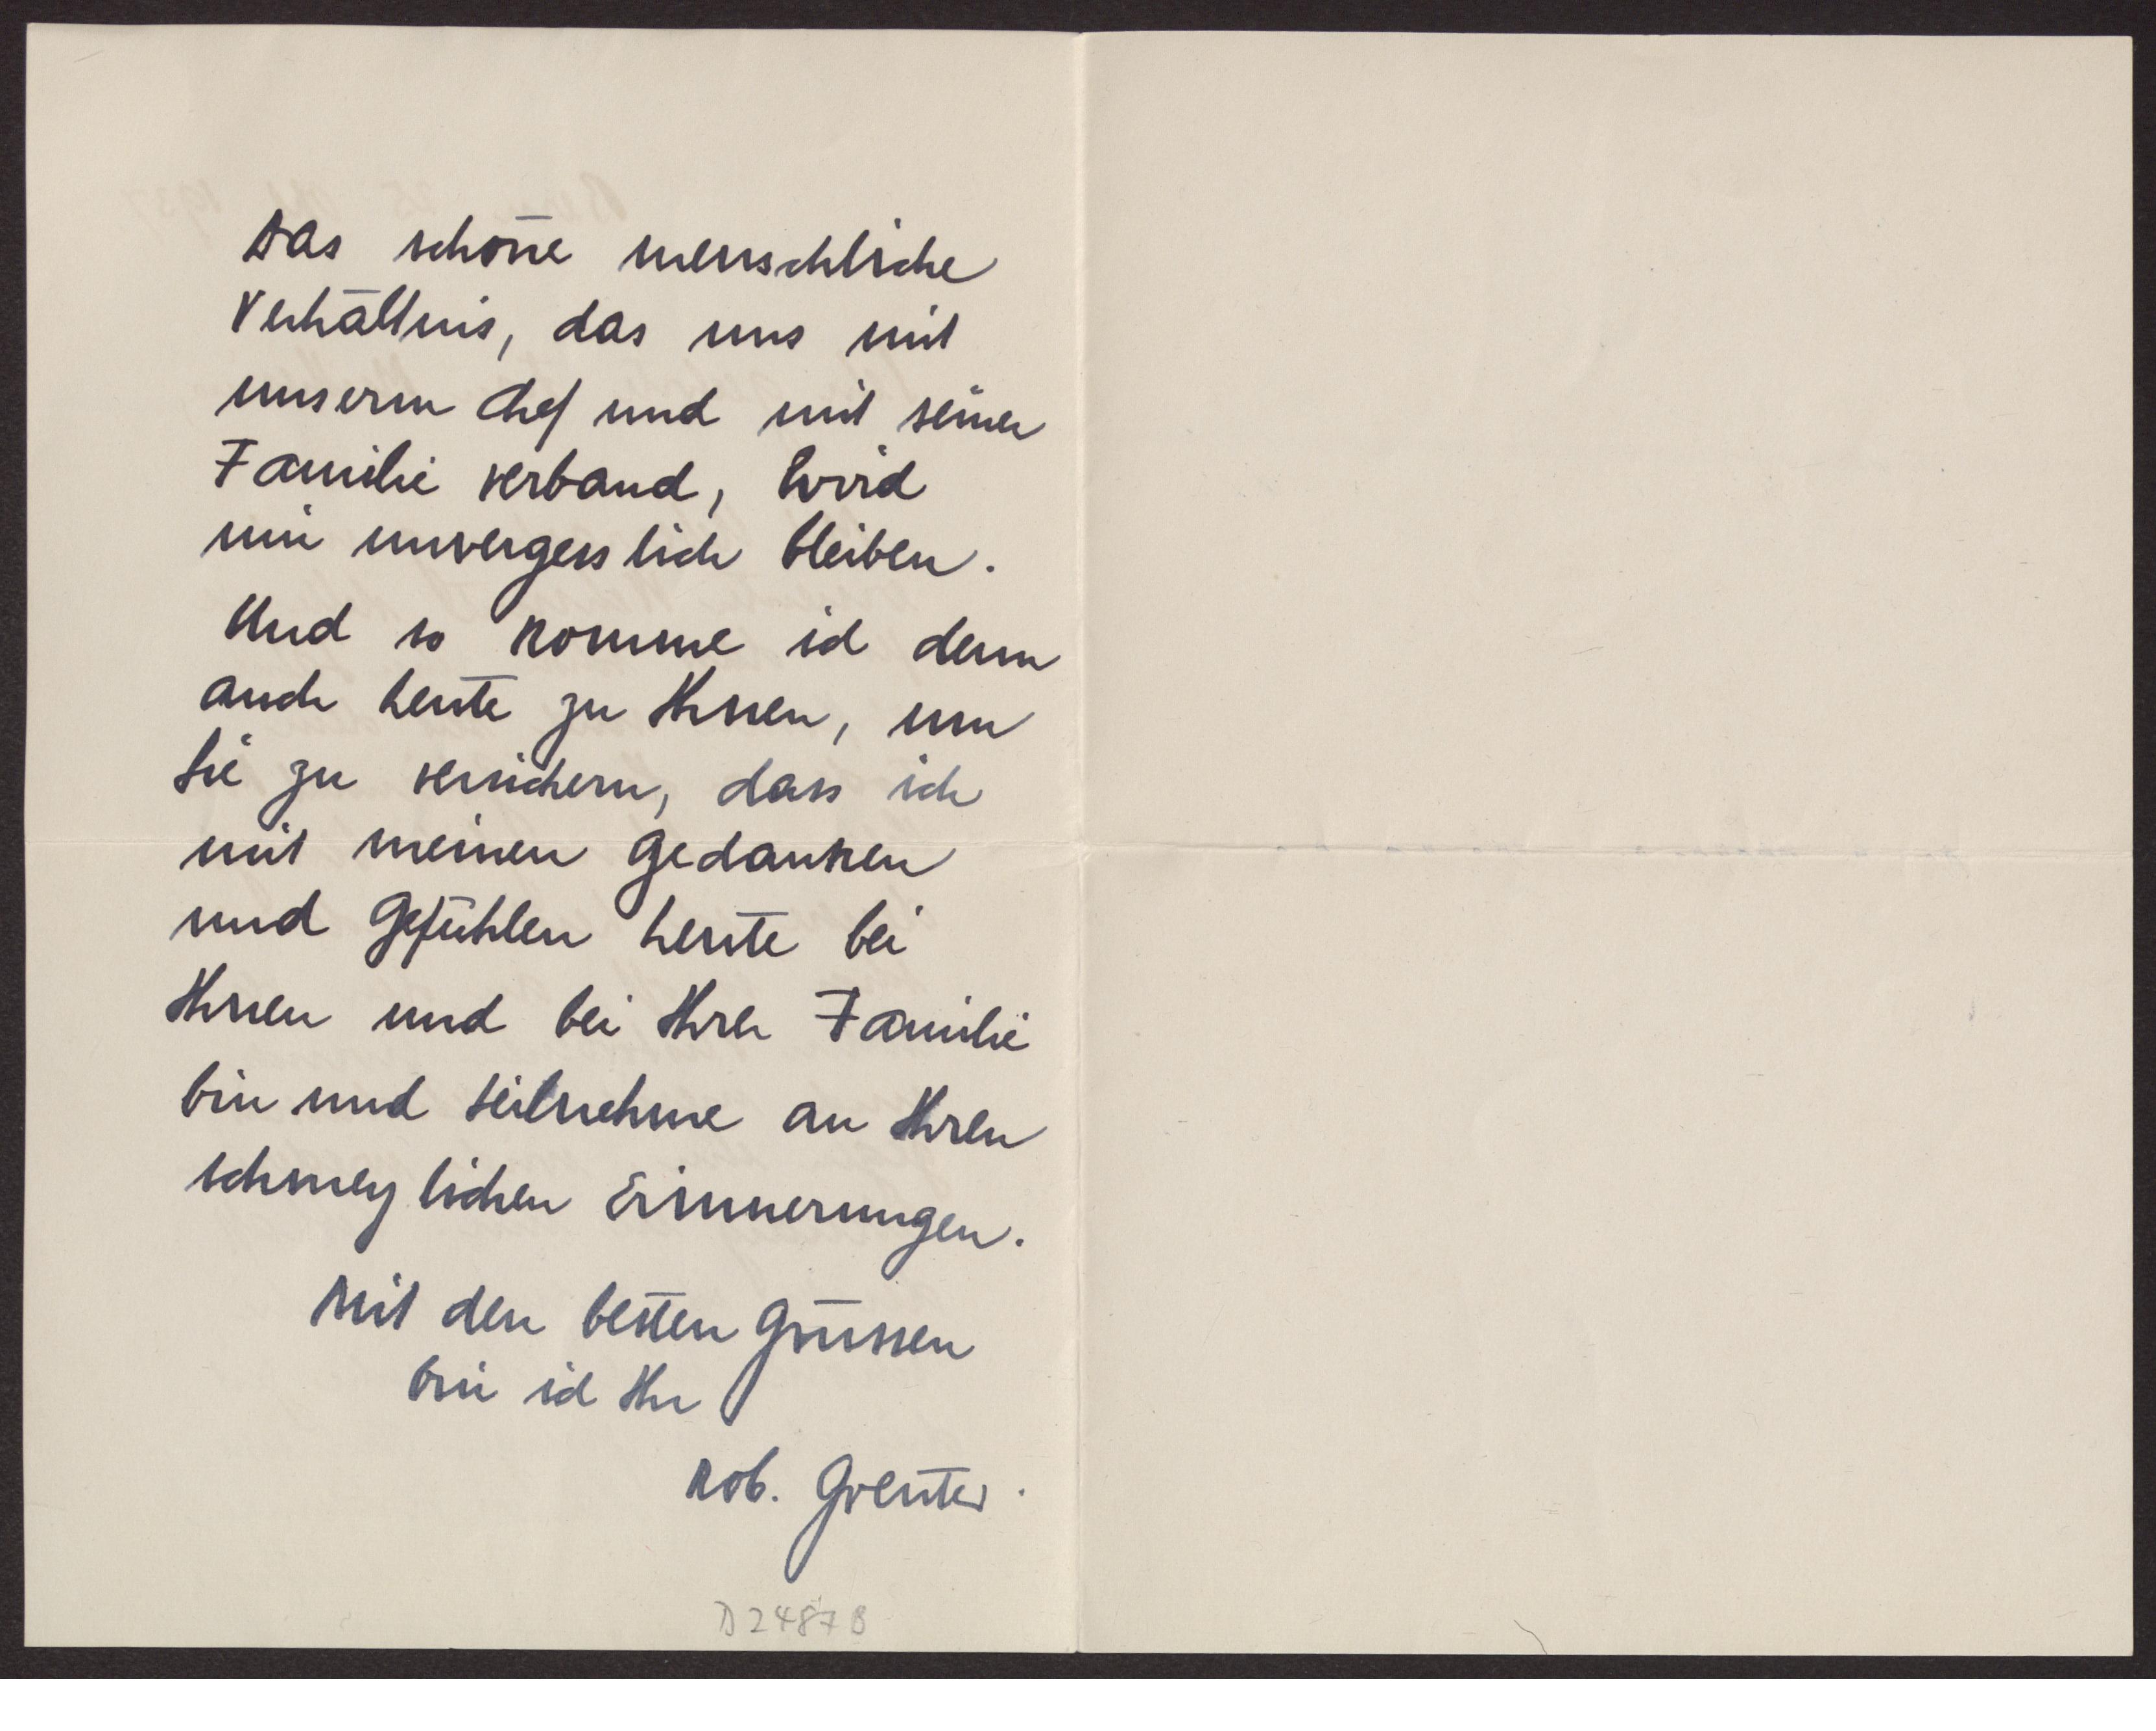 Das schöne menschliche
Verhältnis, das uns mit
unserm Chef und mit seiner
Familie verband, wird
mir unvergesslich bleiben.
Und so komme ich denn
auch heute zu Ihnen, um
Sie zu versichern, dass ich
mit meinen Gedanken
und Gefühlen heute bei
Ihnen und bei Ihrer Familie
bin und teilnehme an Ihren
schmerzlichen Erinnerungen.
Mit den besten Grüssen
bin ich Ihr
Rob. Greuter.
D 2487 B